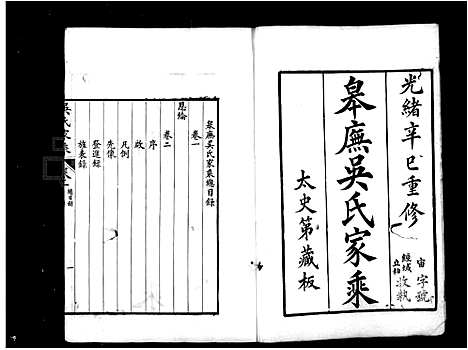 光緒辛巳重修
宙字號
皋廡吳氏家乘
太史第藏板
皋廡吳氏家乘總目錄
卷一
恩綸
卷二
序
啟
凡例
先像
登進錄
旌表錄
吳氏家乘
總目錄
一